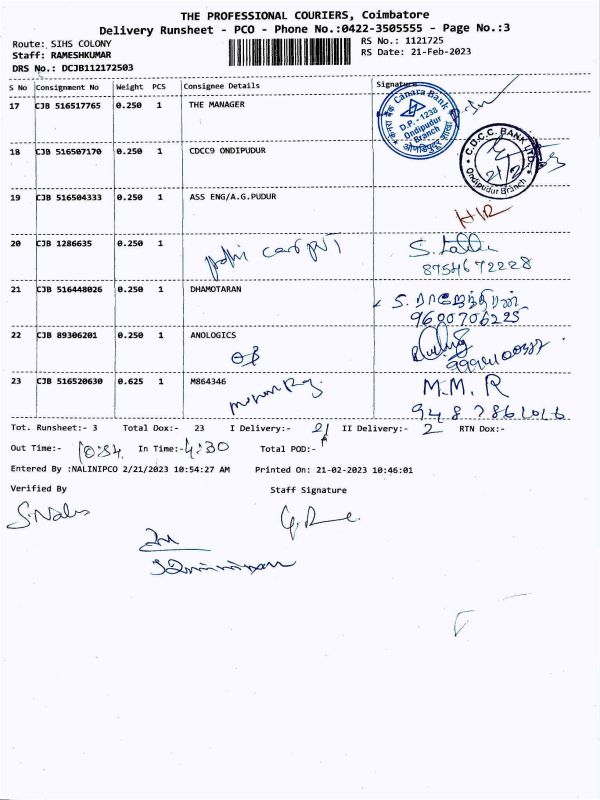 THE PROFESSIONAL COURIERS, Coimbatore
Delivery Runsheet - PCO - Phone No.:0422-3505555 - Page No.:3
Route: SIHS COLONY RS No.: 1121725
Staff: RAMESHKUMAR RS Date: 21-Feb-2023
DRS No.: DCJB112172503
S No Consignment No Weight PCS Consignee Details Signature
17 CJB 516517765 0.250 1 THE MANAGER
Canara Bank
D.P. - 1238
Ondipudur
Branch
18 CJB 516507170 0.250 1 CDCC9 ONDIPUDUR
C.D.C.C. BANK LTD.
Ondipudur Branch
19 CJB 516504333 0.250 1 ASS ENG/A.G.PUDUR
20 CJB 1286635 0.250 1
8754672228
21 CJB 516448026 0.250 1 DHAMOTARAN
S. ராஜேந்திரன்
9600706225
22 CJB 89306201 0.250 1 ANOLOGICS
23 CJB 516520630 0.625 1 M864346 M.M.R
Tot. Runsheet:- 3 Total Dox:- 23 I Delivery:- 21 II Delivery:- 2 RTN Dox:-
Out Time:- 10:54 In Time:- 4:30 Total POD:-
Entered By :NALINIPCO 2/21/2023 10:54:27 AM Printed On: 21-02-2023 10:46:01
Verified By Staff Signature
S.Nalini